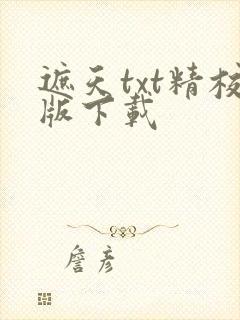 遮天txt精校
版下载
詹彦